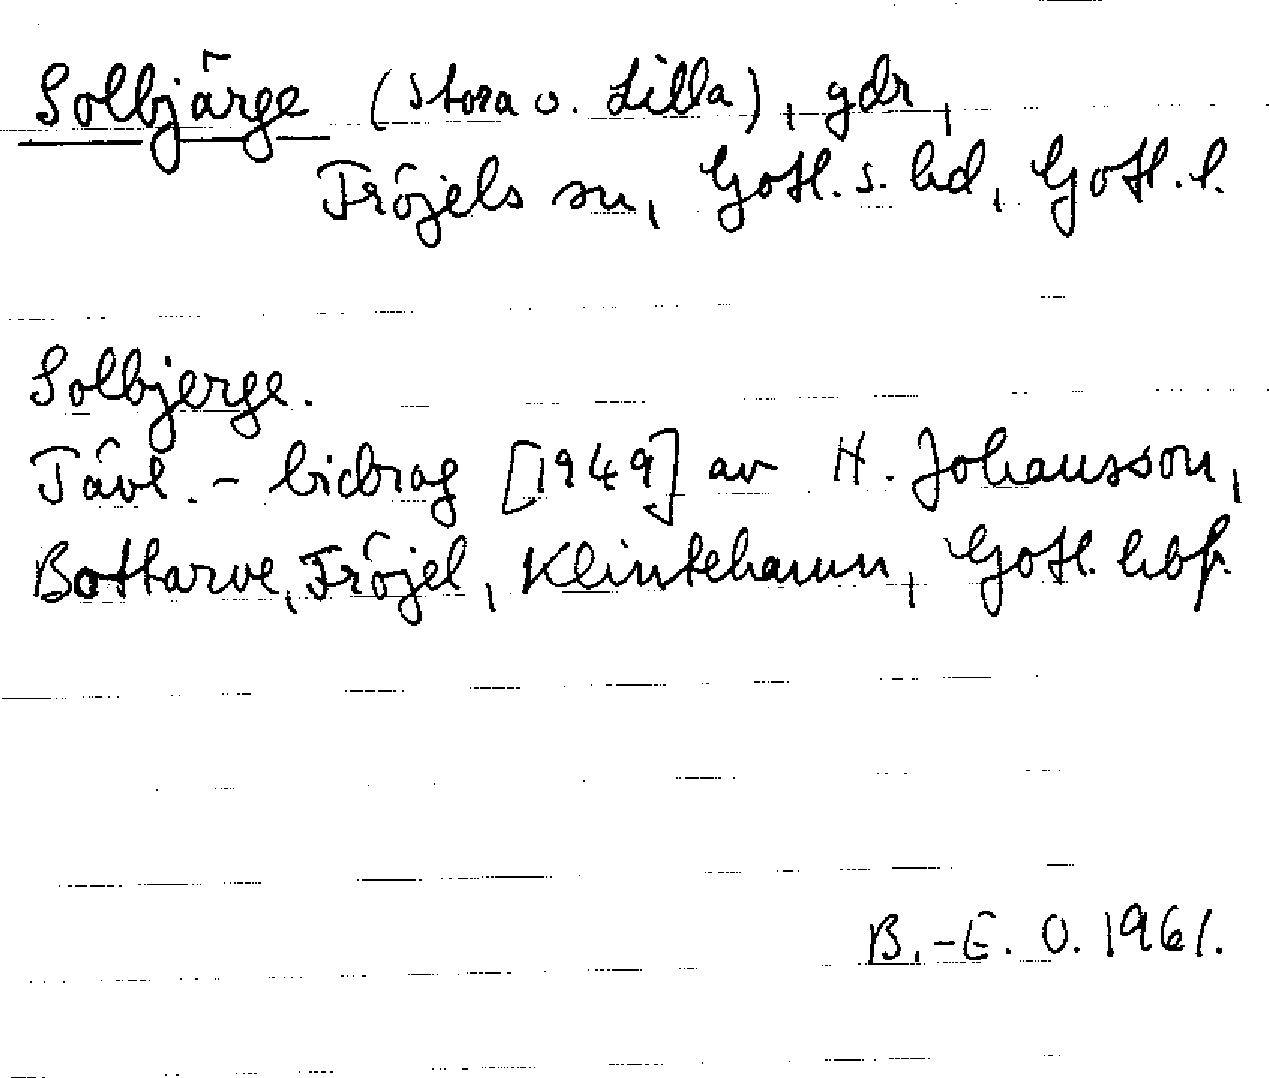 Solbjärge (Stora o. Lilla), gdr,
Fröjels sn, Gotl. s. hd, Gotl. l.
Solbjerge.
Tävl.-bidrag [1949] av H. Johansson,
Bottarve, Fröjel, Klintehamn, Gotl. hbf.
B.-E. O. 1961.